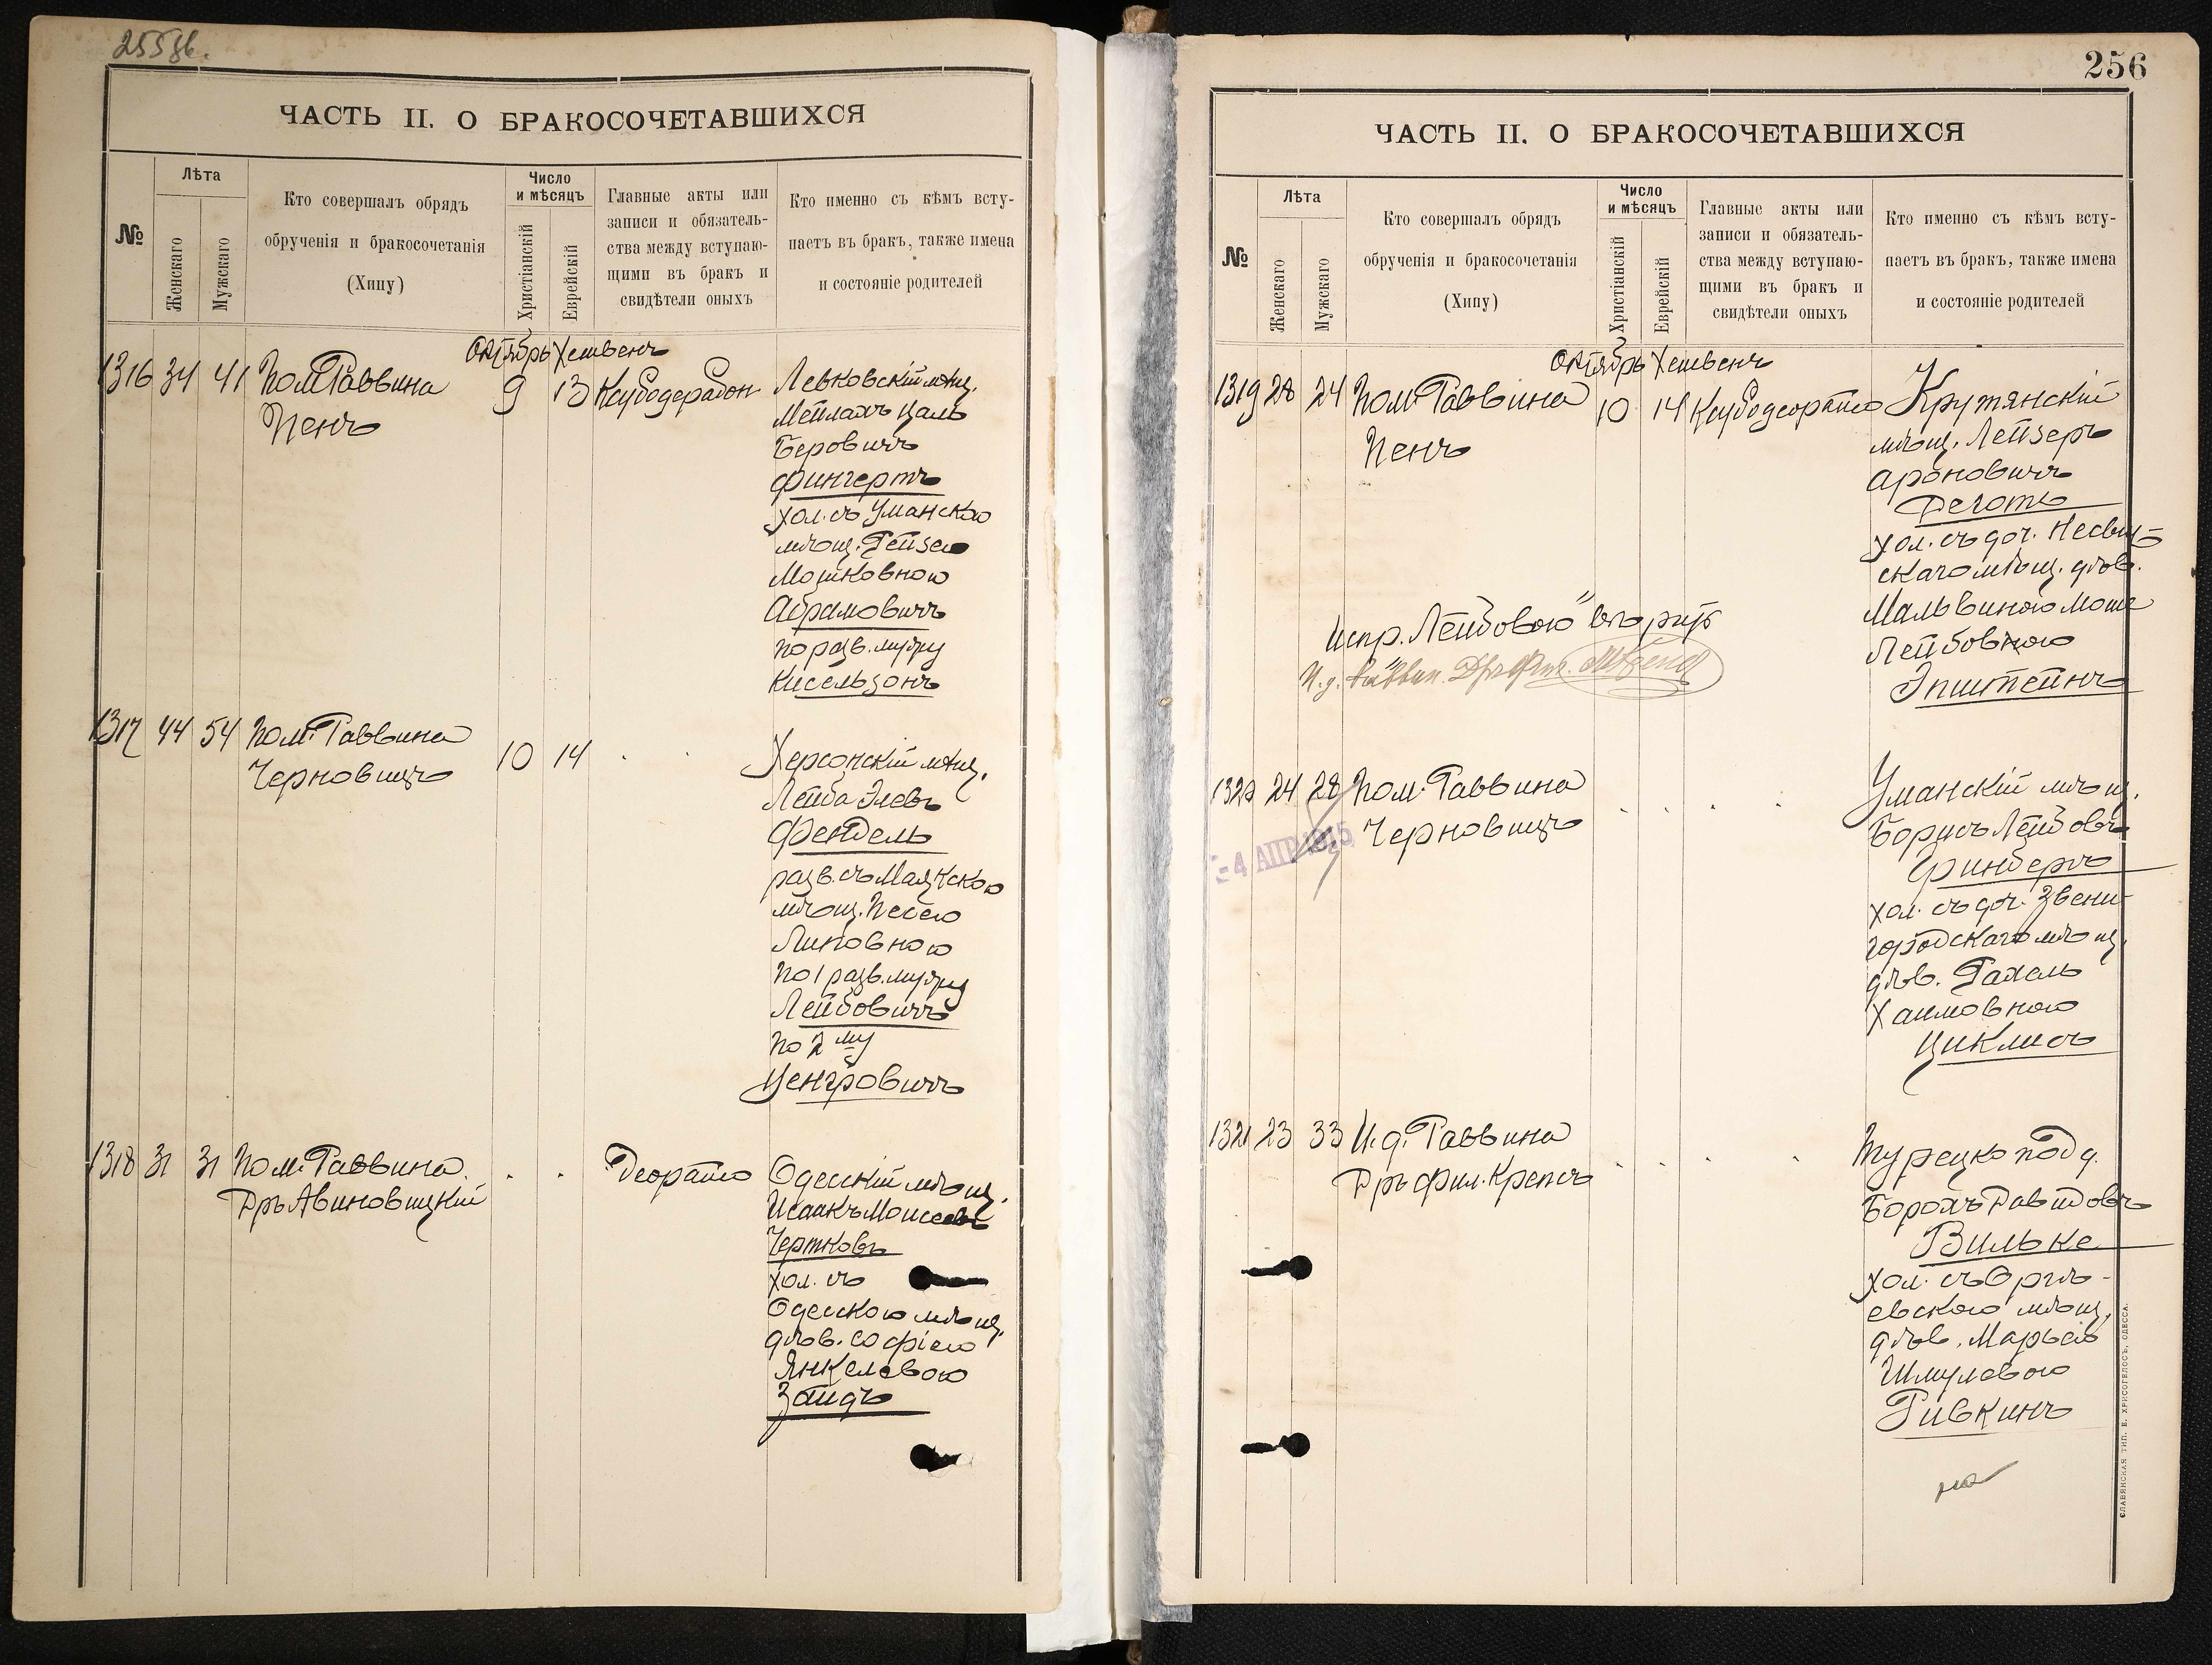 255об.
ЧАСТЬ II. О БРАКОСОЧЕТАВШИХСЯ
№
Лѣта
Женскаго
Мужскаго
Кто совершалъ обрядъ
обрученія и бракосочетанія
(Хипу)
Число
и мѣсяцъ
Христіанскій
Еврейскій
Главные акты или
записи и обязатель-
ства между вступаю-
щими въ бракъ и
свидѣтели оныхъ
Кто именно съ кѣмъ всту-
паетъ въ бракъ, также имена
и состояніе родителей
Октябрь Хешвенъ
1316 34 41 Пом. Раввина
Пенъ
9 13
Левковскій мѣщ.
Мейлахъ Цаль
Беровичъ
Фингертъ
хол. съ Уманскою
мѣщ. Рейзею
Мошковною
Абрамовичъ
по разв. мужу
Кисельзонъ
1317 44 54 Пом. Раввина
Черновицъ
10 14
Херсонскій мѣщ.
Лейба Элевъ
Фендель
разв. съ Маякскою
мѣщ. Песею
Липовною
по 1 разв. мужу
Лейбовичъ
по 2му
Ценгровичъ
1318 31 31 Пом. Раввина
Дръ Авиновицкій
Деорайсо
Одесскій мѣщ.
Исаакъ Моисеевъ
Чертковъ
хол. съ
Одесскою мѣщ.
дѣв. Софіею
Янкелевою
Зайдъ
256
ЧАСТЬ II. О БРАКОСОЧЕТАВШИХСЯ
№
Лѣта
Женскаго
Мужскаго
Кто совершалъ обрядъ
обрученія и бракосочетанія
(Хипу)
Число
и мѣсяцъ
Христіанскій
Еврейскій
Главные акты или
записи и обязатель-
ства между вступаю-
щими въ бракъ и
свидѣтели оныхъ
Кто именно съ кѣмъ всту-
паетъ въ бракъ, также имена
и состояніе родителей
Октябрь Хешвенъ
1319 28 24 Пом. Раввина
Пенъ
10 14 Ксубодеорайсо
Крутянскій
мѣщ. Лейзеръ
Ароновичъ
Деготь
хол. съ доч. Несвиж-
скаго мѣщ. дѣв.
Мальвиною Моше
Лейбовною
Эпштейнъ
Испр. "Лейбовою" вѣрить
И. д. Раввин. Дръ Фил.
1320 24 28 Пом. Раввина
Черновицъ
-4 АПР 1915
Уманскій мѣщ.
Борисъ Лейбовъ
Финбергъ
хол. съ доч. Звени-
городскаго мѣщ.
дѣв. Рахель
Хаимовною
Циклисъ
1321 23 33 И. д. Раввина
Дръ Фил. Крепсъ
Турецко под д.
Борохъ Давидовъ
Вильке
хол. съ Оргѣ-
евскою мѣщ.
дѣв. Марьею
Шмулевою
Ривкинъ
СЛАВЯНСКАЯ ТИП. Е. ХРИСОГЕЛОСЪ, ОДЕССА.